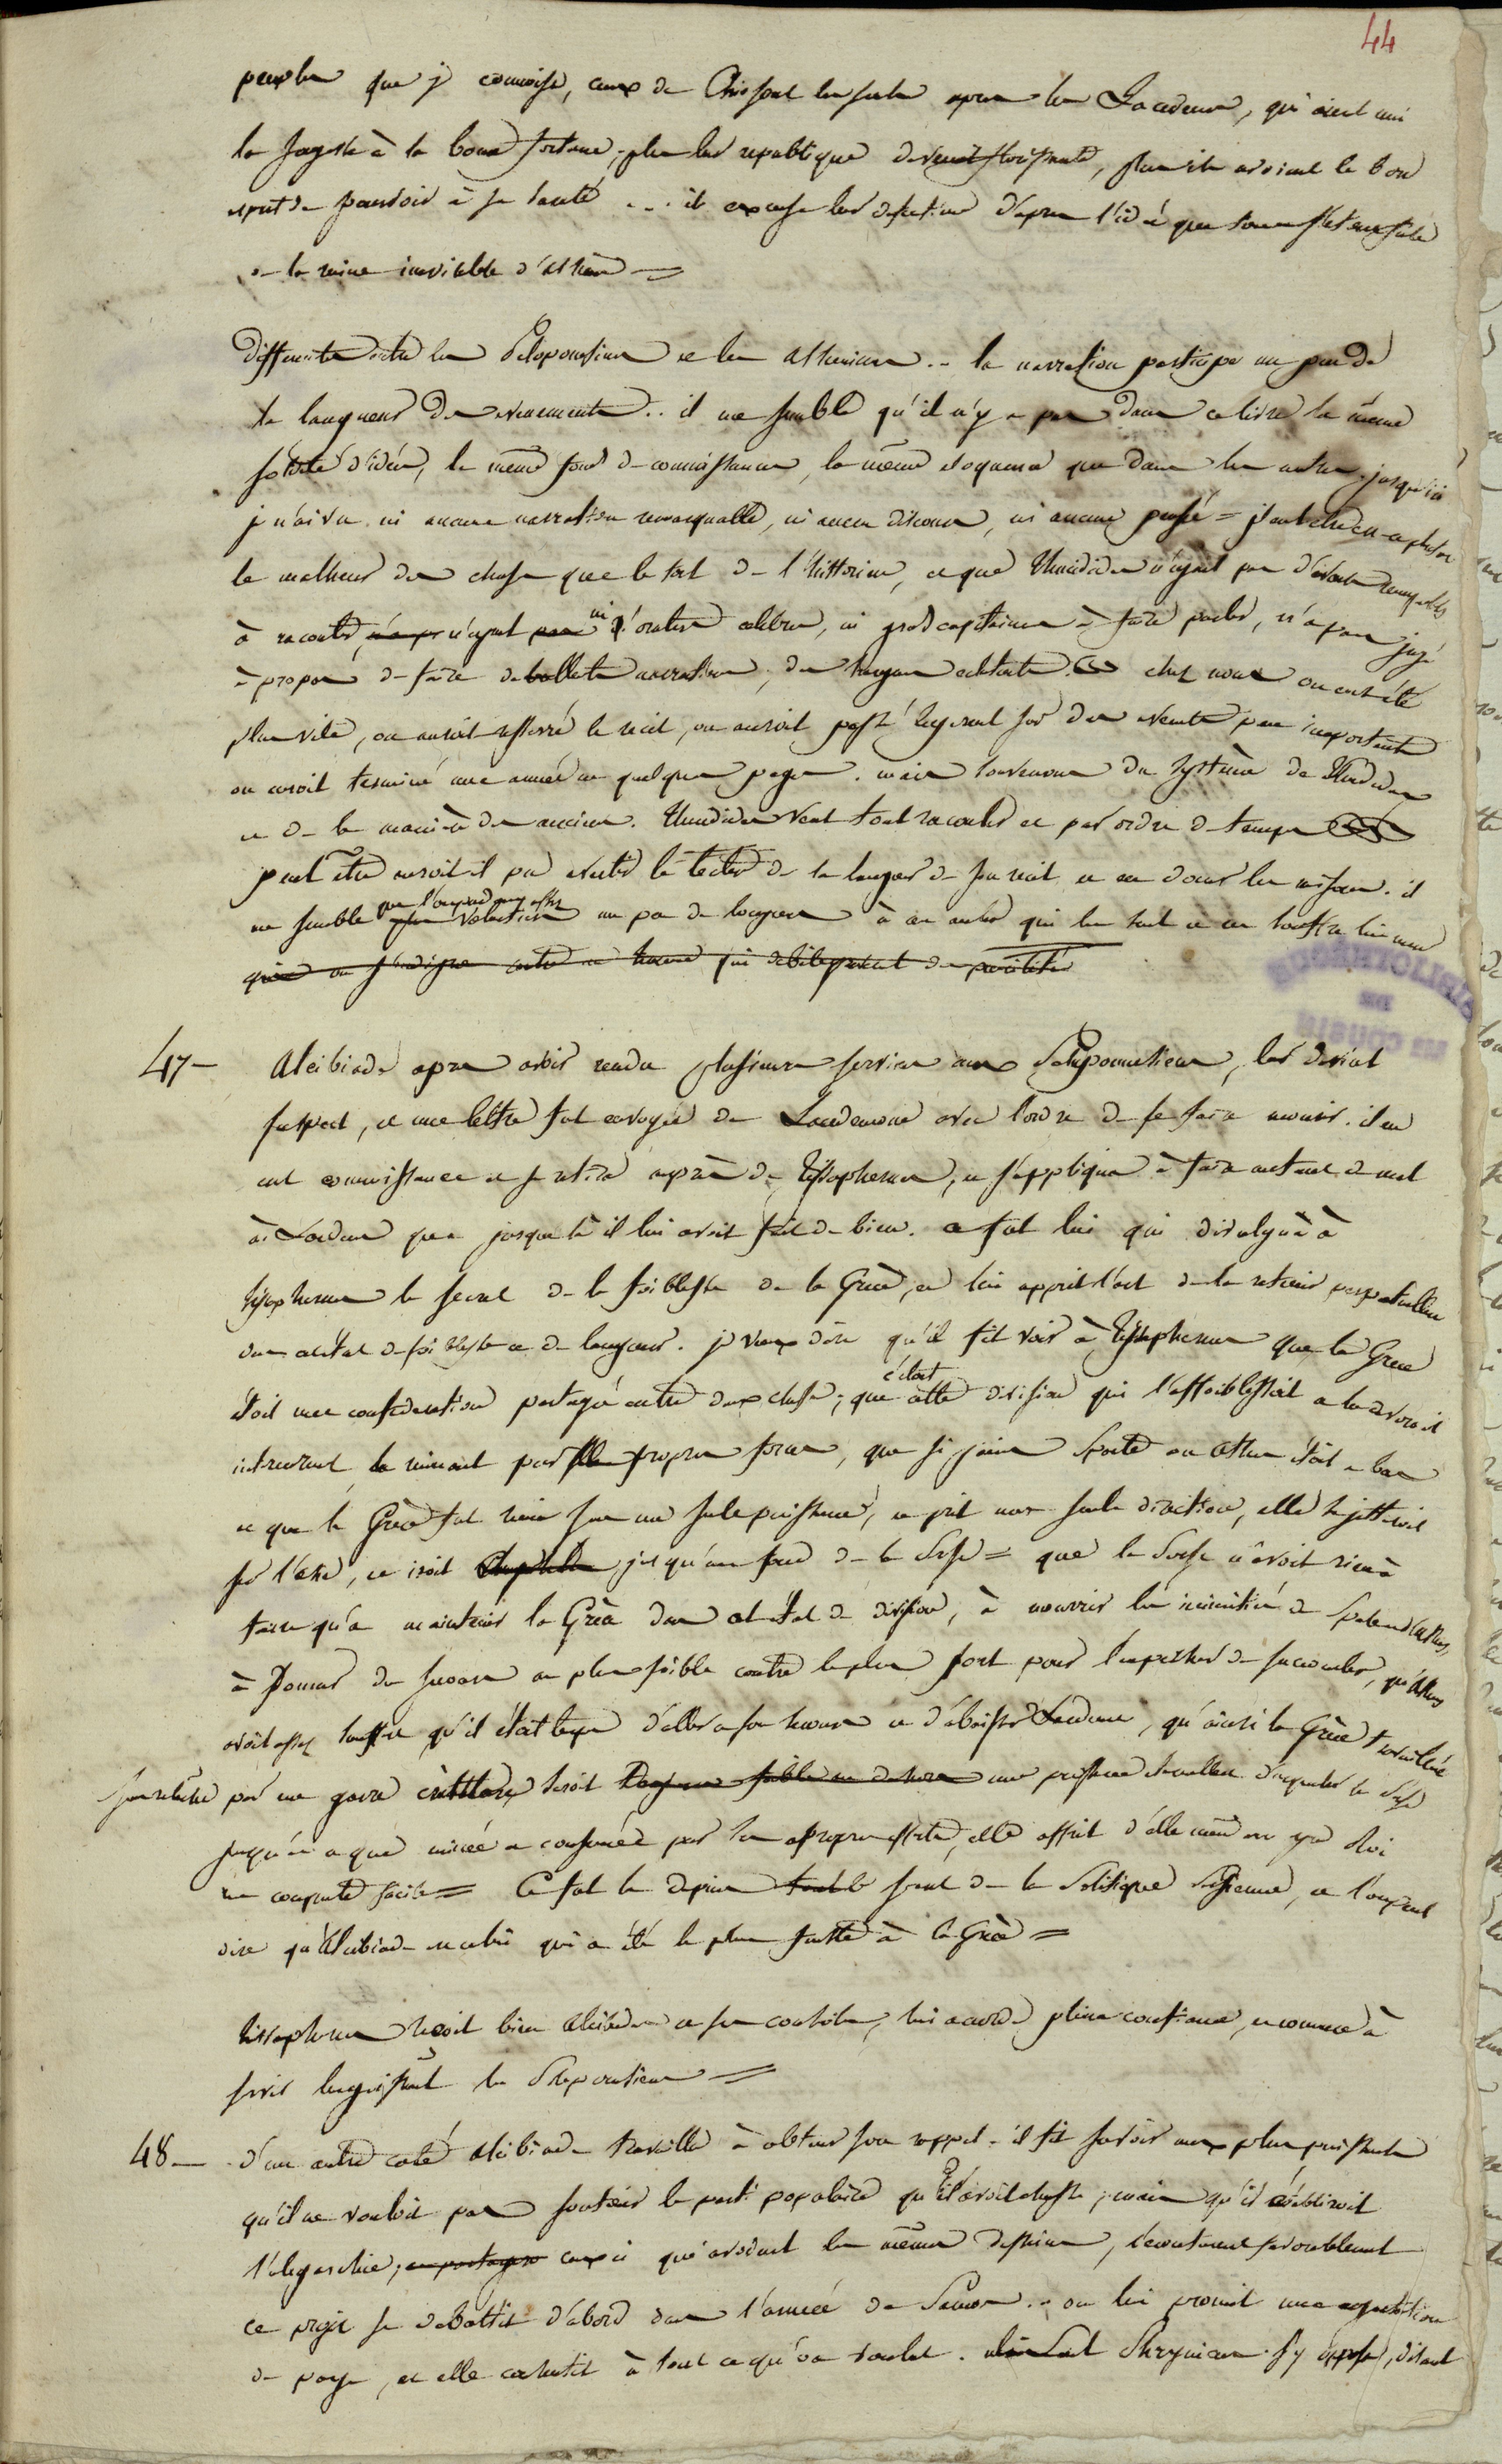 44
peuples que je connoisse, ceux de Chio sont les seuls apres les Lacedem, qui aient uni
la sagesse à la bonne fortune; plus leur republique devenoit florissante, plus ils avoient le bon
esprit de pourvoir à sa sureté ... il excuse leur defection d'apres l'idée que tous s'étoient faite
de la ruine inevitable d'athenes =
differents entre les Peloponnesiens et les atheniens .. la narration participe un peu de
la langueur des evenements .. il me semble qu'il n'y a pas dans ce livre la même
solidité d'idées, le même fond de connaissances, la même eloquence que dans les autres. jusqu'ici
je n'ai vu ni aucune narration remarquable, ni aucun discours, ni aucune pensée = peut être est-ce plutot
le malheur des choses que le tort de l'historien, et que Thucidide n'ayant pas d'evenements remarquables
à raconter, n'ayant ni d'orateurs celebres, ni grands capitaines à faire parler, n'a pas jugé
à propos de faire de belles narrations, des harangues eclatantes. chez nous on eut été
plus vite, on auroit resserré le recit, on auroit passé legerement sur des evenements peu importants
on auroit terminé une année en quelques pages. mais souvenons du systême de Thucidide
et de la maniere des anciens. Thucidide veut tout raconter et par ordre de temps
peut être auroit il pu avertir le lecteur de la langueur de son recit et en donner les raisons. il
me semble que l'on pardonne assez volontiers un peu de longueur à un auteur qui les sent et en souffre lui même
qui on s'indigne contre un homme qui debite gravement des puerilités
47 – Alcibiade apres avoir rendu plusieurs services aux Peloponnesiens, leur devint
suspect, et une lettre fut envoyée de Lacedemone avec l'ordre de le faire mourir. il en
eut connoissance et se retira auprès de Tissapherne, et s'appliqua à faire autant de mal
à Lacedem que jusque là il lui avoit fait de bien. ce fut lui qui divulgua à
Tissapherne le secret de la foiblesse de la Grece, et lui apprit l'art de la retenir perpetuellement
dans cet état de foiblesse et de langueur. je veux dire qu'il fit voir à Tissapherne que la Grece
étoit une confederation partagée entre deux chefs; que c'étoit cette division qui l'affoiblissoit et la devoroit
interieurement la ruinant par ses propres forces, que si jamais Sparte ou Athenes étoit à bas
et que la Grece fut reunie sous une seule puissance, et prit une seule direction, elle se jetteroit
sur l'asie, et iroit jusqu'au fond de la Perse = que la Perse n'avoit rien à
faire qu'à maintenir la Grece dans cet état de division, à nourrir les inimitiés de Sparte et d'Athenes,
à donner du secours au plus foible contre le plus fort pour l'empecher de succomber, qu'Athenes
avoit assez souffert qu'il étoit temps d'aller à son secours et d'abaisser Lacedemone, qu'ainsi la Grece travaillée
sans relâche par une guerre intestine seroit une puissance
jusqu'à ce que minée et consumée par ses propres efforts, elle offrit d'elle même au grd Roi
une conquete facile = Ce fut là depuis tout le secret de la Politique Persienne, et l'on peut
dire qu'Alcibiade est celui qui a été le plus funeste à la Grèce =
Tissapherne reçoit bien Alcibiade et ses conseils, lui accorde pleine confiance, et commence à
servir languissamment les Peloponnesiens =
48 – D'un autre coté Alcibiade travailla à obtenir son rappel. il fit savoir aux plus puissants
qu'il ne vouloit pas soutenir le parti populaire qui l'avoit chassé; mais qu'il établiroit
l'oligarchie; ceux ci qui avoient les mêmes desseins, l'ecouterent favorablement
ce projet se debattit d'abord dans l'armée de Samos .. on lui promit une augmentation
de paye, et elle consentit à tout ce qu'on voulut. Phrynicus s'y opposa, disant